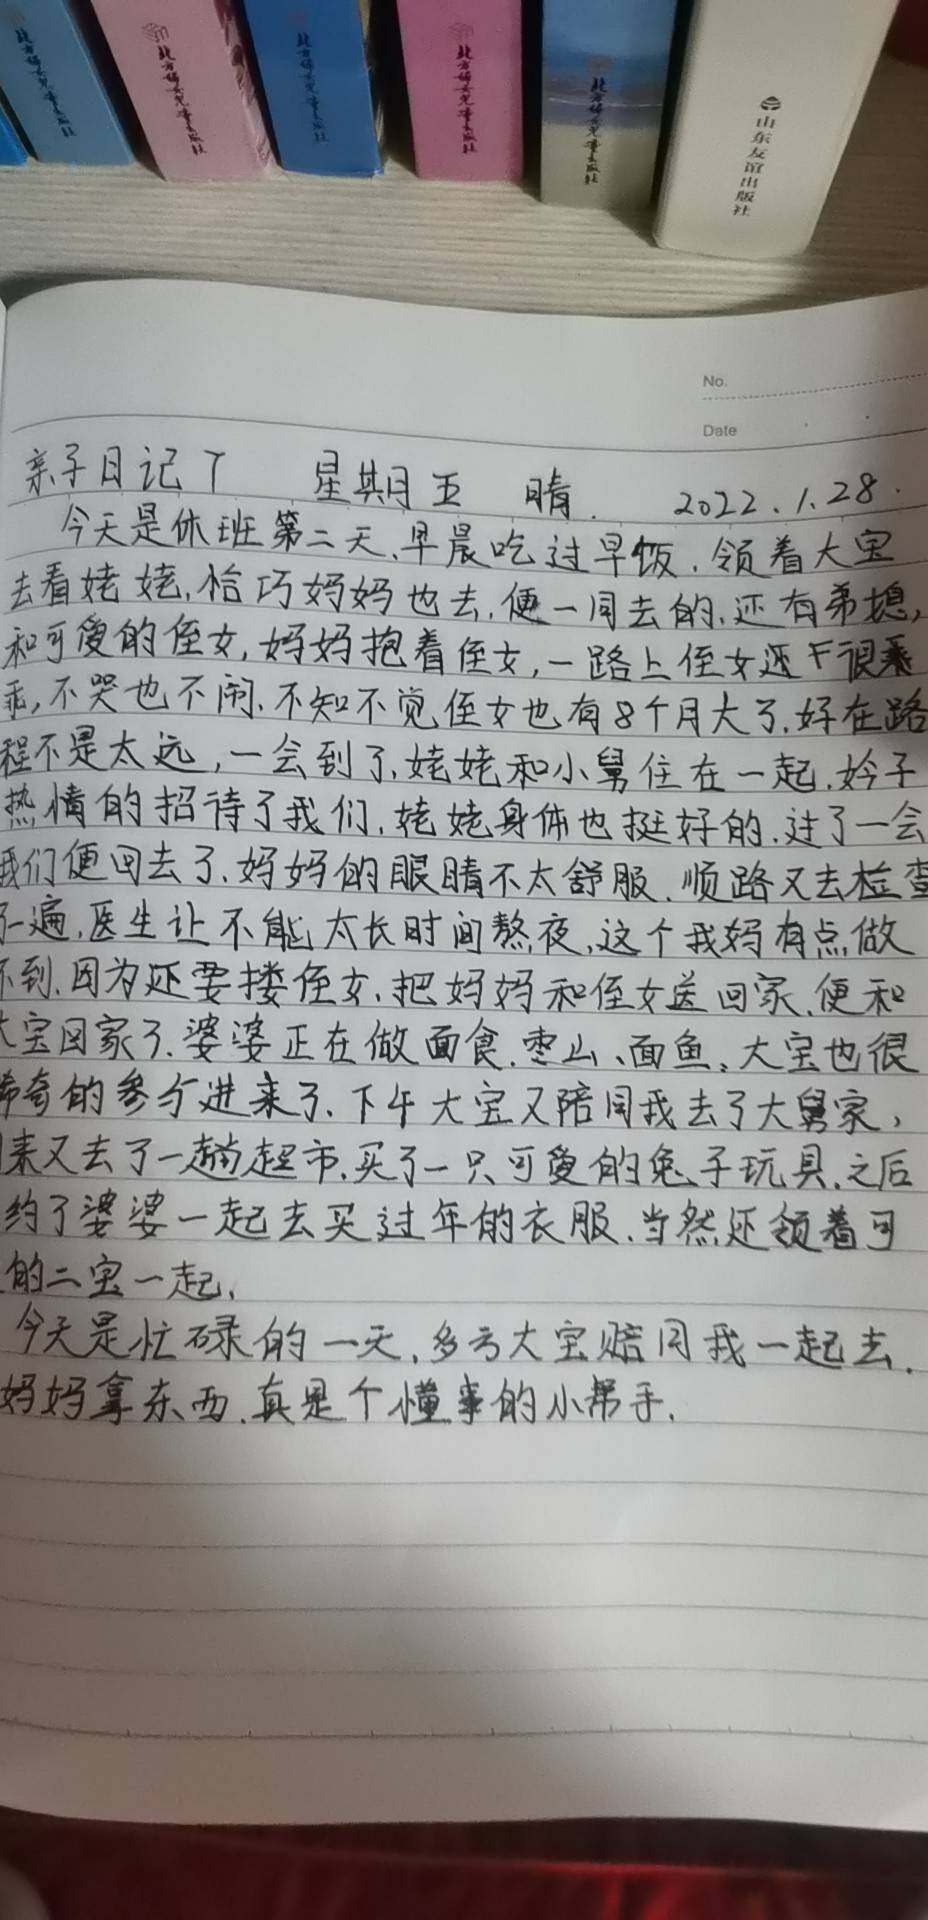 北方妇女儿童出版社
北方妇女儿童出版社
北方妇女儿童出版社
北方妇女儿童出版社
北方妇女儿童出版社
山东友谊出版社
No.
Date
亲子日记 星期五 晴. 2022.1.28.
今天是休班第二天,早晨吃过早饭,领着大宝
去看姥姥,恰巧妈妈也去,便一同去的,还有弟媳,
和可爱的侄女,妈妈抱着侄女,一路上侄女还很乖
乖,不哭也不闹,不知不觉侄女也有8个月大了,好在路
程不是太远,一会到了,姥姥和小舅住在一起,妗子
热情的招待了我们,姥姥身体也挺好的,过了一会
我们便回去了,妈妈的眼睛不太舒服,顺路又去检查
了一遍,医生让不能太长时间熬夜,这个我妈有点做
不到,因为还要搂侄女,把妈妈和侄女送回家,便和
大宝回家了,婆婆正在做面食,枣山、面鱼,大宝也很
稀奇的参与进来了,下午大宝又陪同我去了大舅家,
来又去了一趟超市,买了一只可爱的兔子玩具,之后
约了婆婆一起去买过年的衣服,当然还领着可
的二宝一起,
今天是忙碌的一天,多亏大宝赔同我一起去,
妈妈拿东西,真是个懂事的小帮手,